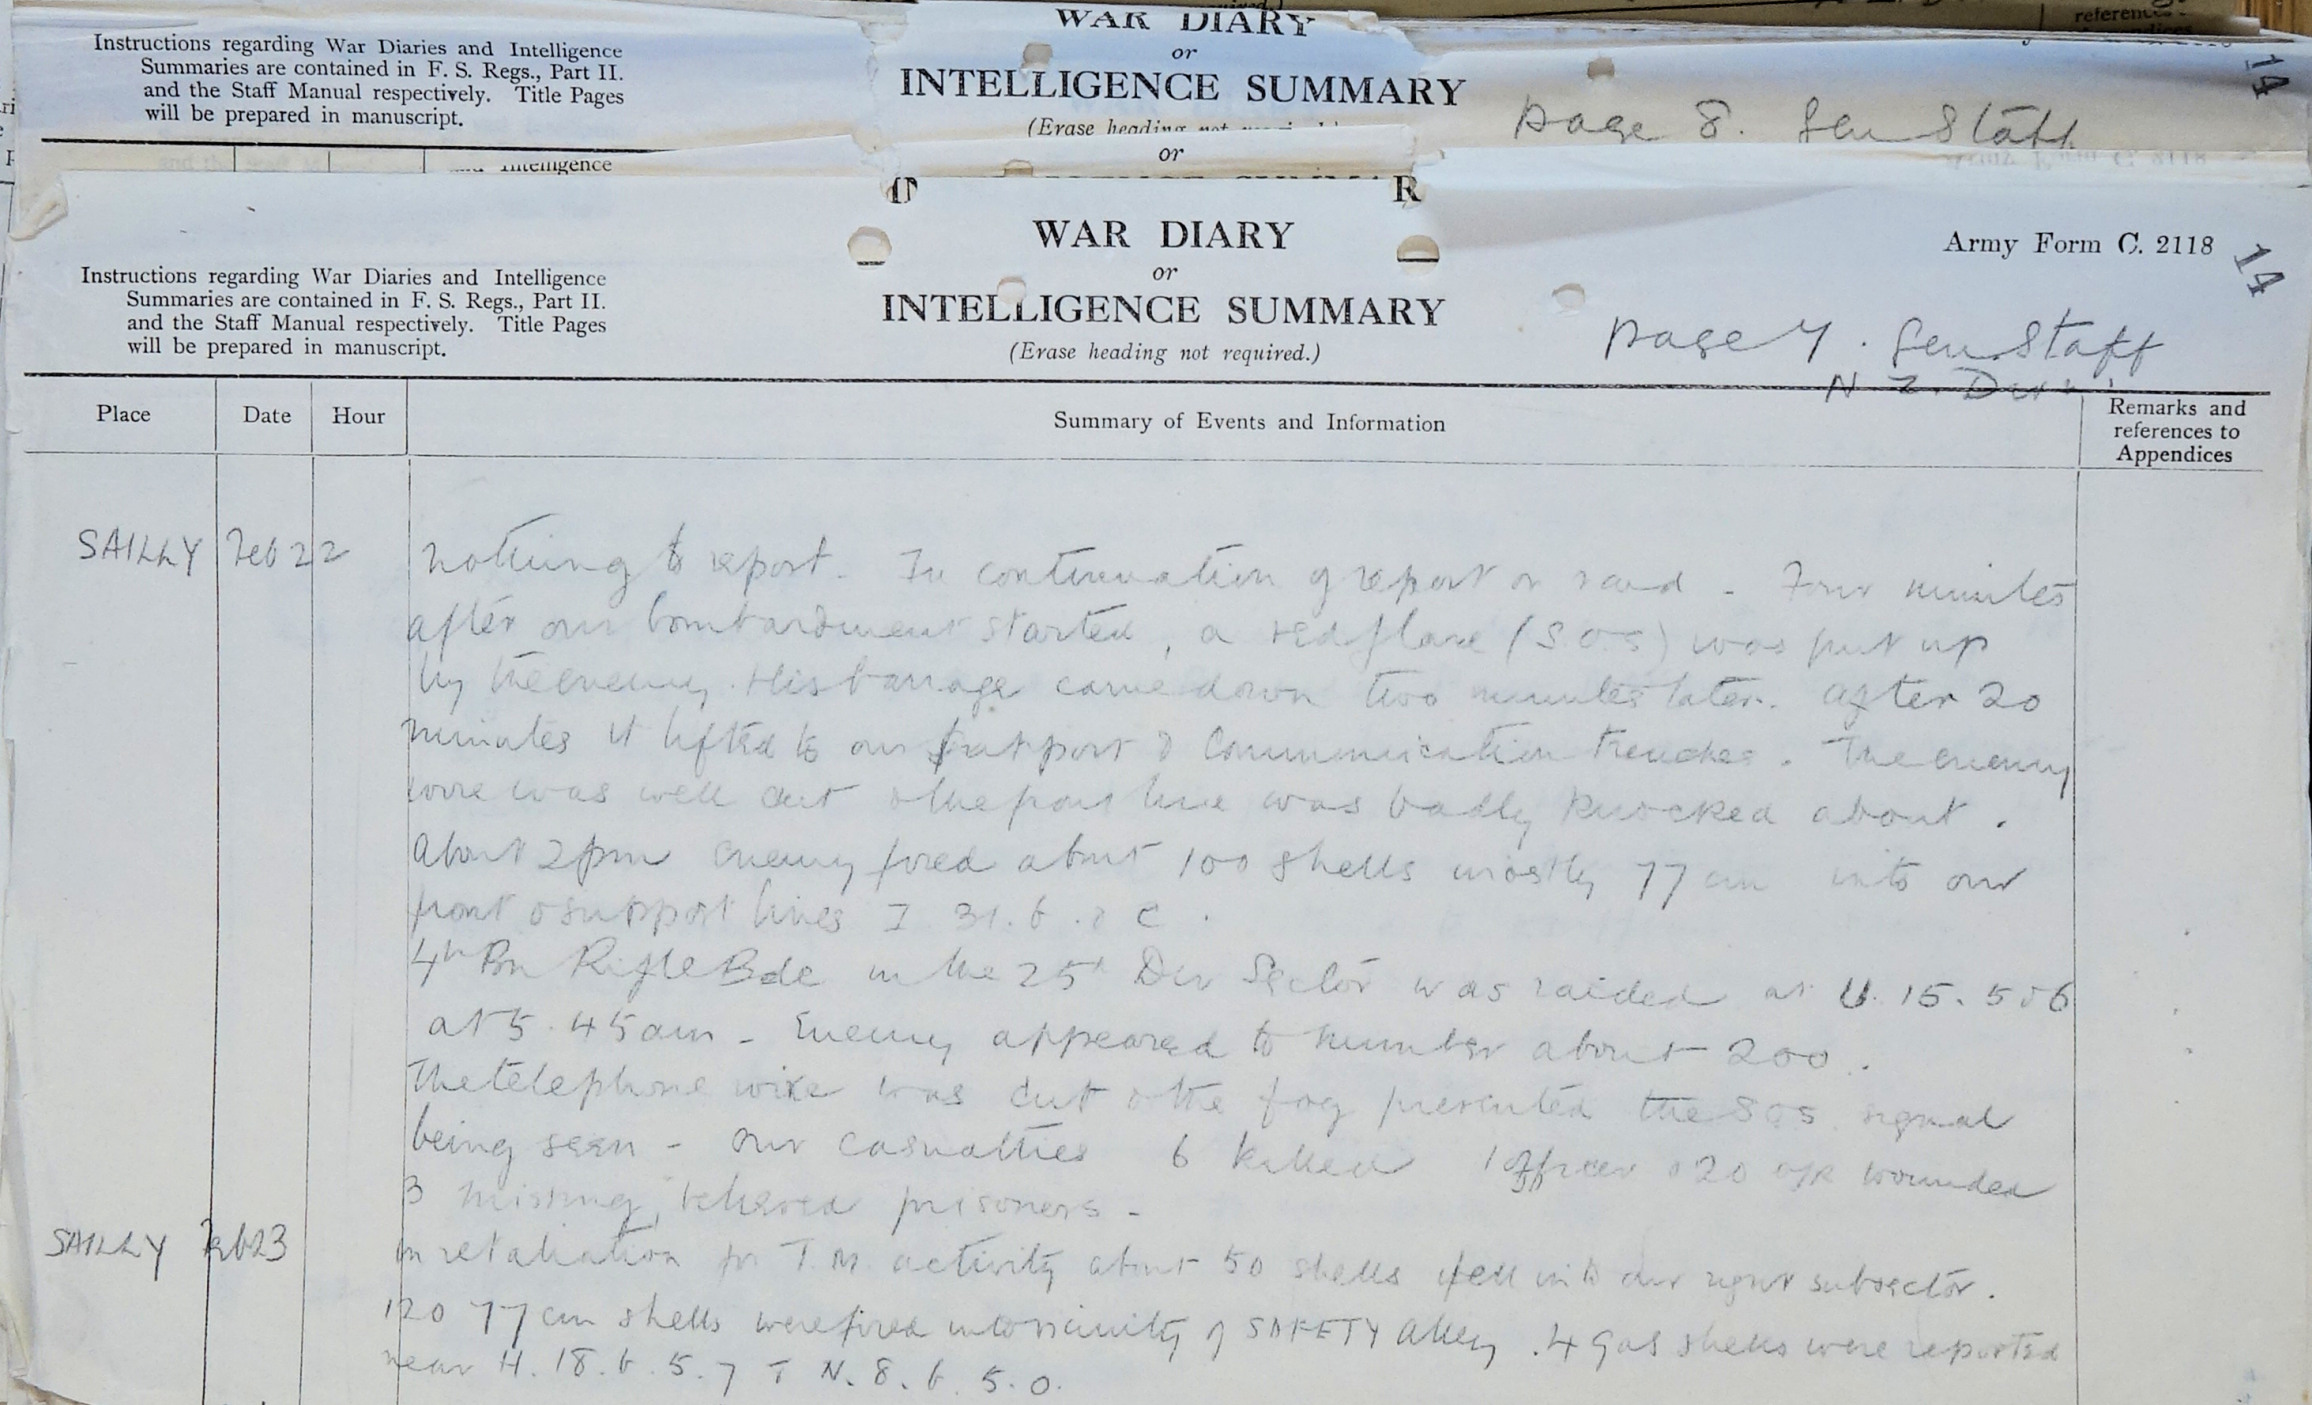 references
Instructions regarding War Diaries and Intelligence
Summaries are contained in F. S. Regs., Part II.
and the Staff Manual respectively. Title Pages
will be prepared in manuscript.
WAR DIARY
or
INTELLIGENCE SUMMARY
(Erase heading not
page 8. Gen Staff
14
Intelligence
or
WAR DIARY
or
INTELLIGENCE SUMMARY
(Erase heading not required.)
Instructions regarding War Diaries and Intelligence
Summaries are contained in F. S. Regs., Part II.
and the Staff Manual respectively. Title Pages
will be prepared in manuscript.
Army Form C. 2118
14
page 7. Gen. Staff
N. Z. Div.
Place
Date
Hour
Summary of Events and Information
Remarks and
references to
Appendices
SAILLY Feb 22 Nothing to report. In continuation of report on raid - Four minutes
after our bombardment started, a red flare (S.O.S) was put up
by the enemy. His barrage came down two minutes later. After 20
minutes it lifted to our support & Communication trenches. The enemy
wire was well cut & the front line was badly knocked about.
About 2pm enemy fired about 100 shells mostly 77 cm into our
front & support lines I 31. b. & c.
4th Bn Rifle Bde in the 25th Div Sector was raided at U. 15. 5 & 6
at 5.45am - Enemy appeared to number about 200.
The telephone wire was cut & the fog prevented the SOS signal
being seen - our casualties 6 killed 1 officer & 20 O/R wounded
3 missing, believed prisoners -
SAILLY Feb 23 In retaliation for T.M. activity about 50 shells fell into our right subsector.
120 77 cm shells were fired into vicinity of SAFETY Alley. 4 gas shells were reported
near H. 18. b. 5. 7 & N. 8. b. 5. 0.